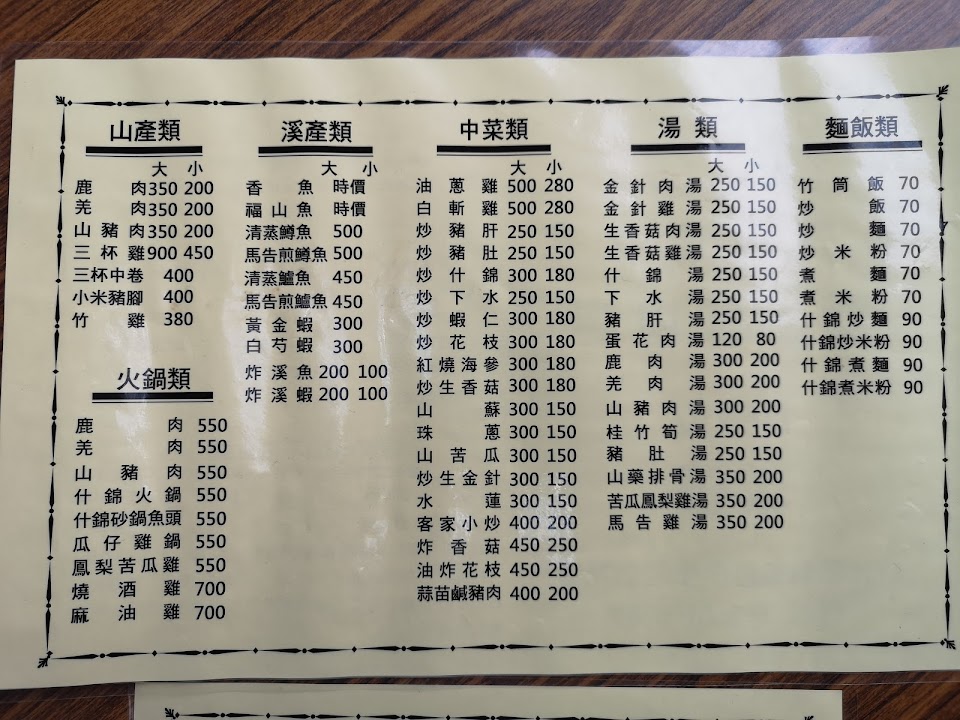 山產類
大 小
鹿肉 350 200
羌肉 350 200
山豬肉 350 200
三杯雞 900 450
三杯中卷 400
小米豬腳 400
竹雞 380
火鍋類
鹿肉 550
羌肉 550
山豬肉 550
什錦火鍋 550
什錦砂鍋魚頭 550
瓜仔雞鍋 550
鳳梨苦瓜雞 550
燒酒雞 700
麻油雞 700
溪產類
大 小
香魚 時價
福山魚 時價
清蒸鱒魚 500
馬告煎鱒魚 500
清蒸鱸魚 450
馬告煎鱸魚 450
黃金蝦 300
白芍蝦 300
炸溪魚 200 100
炸溪蝦 200 100
中菜類
大 小
油蔥雞 500 280
白斬雞 500 280
炒豬肝 250 150
炒豬肚 250 150
炒什錦 300 180
炒下水 250 150
炒蝦仁 300 180
炒花枝 300 180
紅燒海參 300 180
炒生香菇 300 180
山蘇 300 150
珠蔥 300 150
山苦瓜 300 150
炒生金針 300 150
水蓮 300 150
客家小炒 400 200
炸香菇 450 250
油炸花枝 450 250
蒜苗鹹豬肉 400 200
湯類
大 小
金針肉湯 250 150
金針雞湯 250 150
生香菇肉湯 250 150
生香菇雞湯 250 150
什錦湯 250 150
下水湯 250 150
豬肝湯 250 150
蛋花肉湯 120 80
鹿肉湯 300 200
羌肉湯 300 200
山豬肉湯 300 200
桂竹筍湯 250 150
豬肚湯 250 150
山藥排骨湯 350 200
苦瓜鳳梨雞湯 350 200
馬告雞湯 350 200
麵飯類
竹筒飯 70
炒飯 70
炒麵 70
炒米粉 70
煮麵 70
煮米粉 70
什錦炒麵 90
什錦炒米粉 90
什錦煮麵 90
什錦煮米粉 90